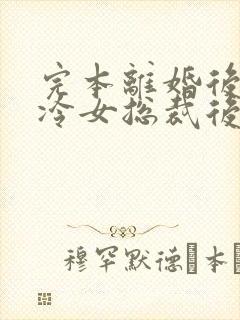 完本離婚後
冷女总裁後
穆罕默德 本